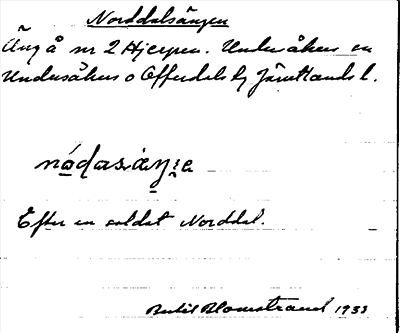 Norddalsängen
Äng å nr 2 Hjerpen. Undersåkers sn
Undersåkers o Offerdals tg Jämtlands l.
Efter en soldat Norddal.
Bertil Blomstrand 1933